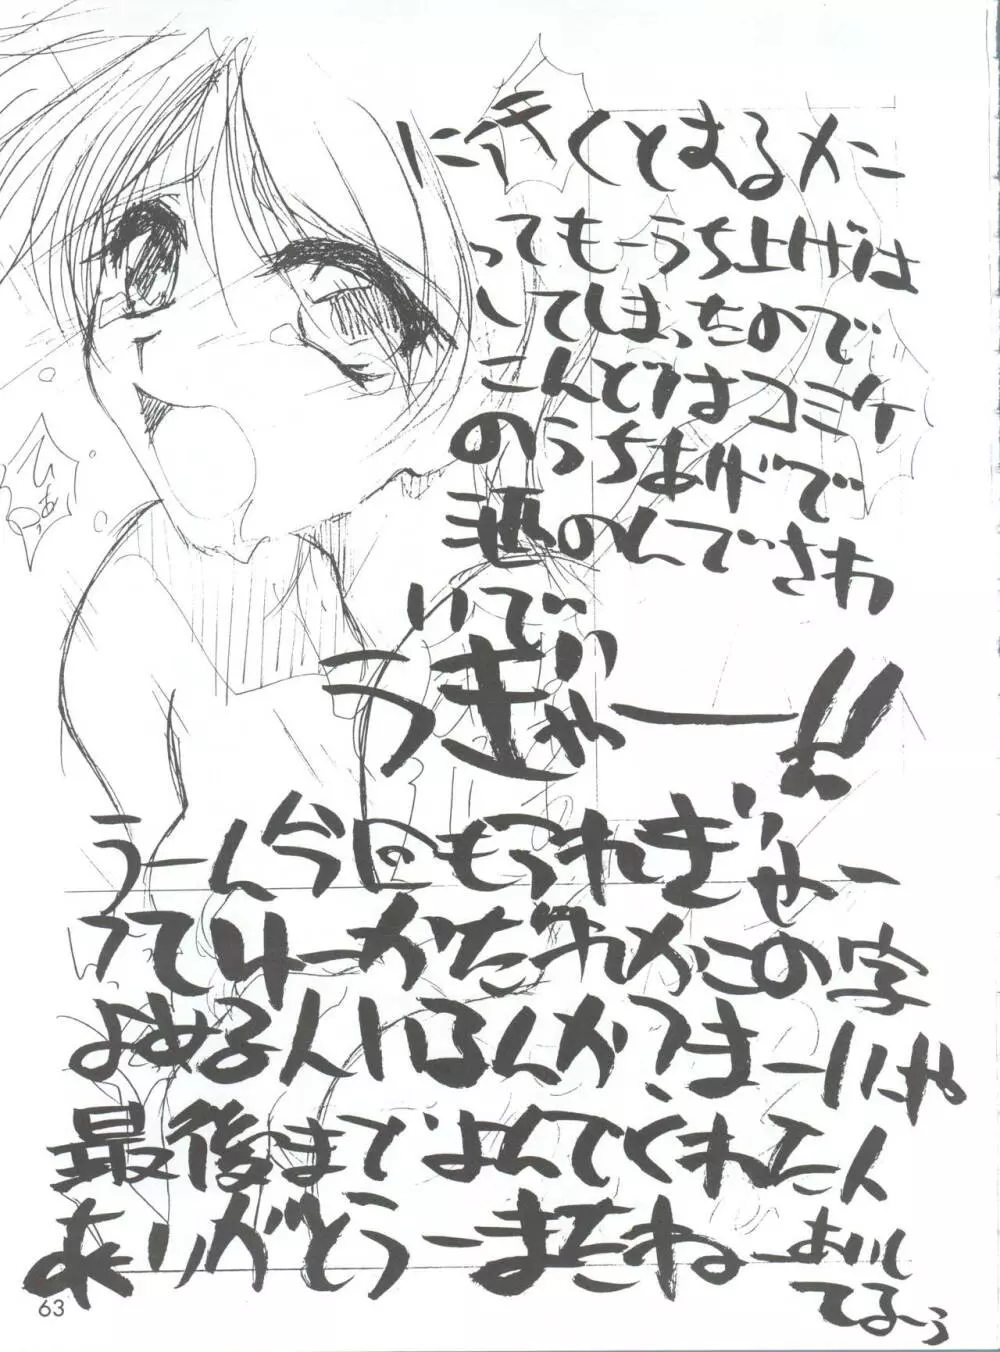 に行くとまるメン
ってもーうち上げは
してしまったので
こんどはコミケ
のうちあげで
酒のんでさわ
いでい
うぎゃー!!
うーん今回もつれぎゃー
ってゆーかだれかこの字
よめる人いるんか?まーいいや
最後までよんでくれた人
ありがとうーまたねーあいし
てるーぅ
ひぁっ
63